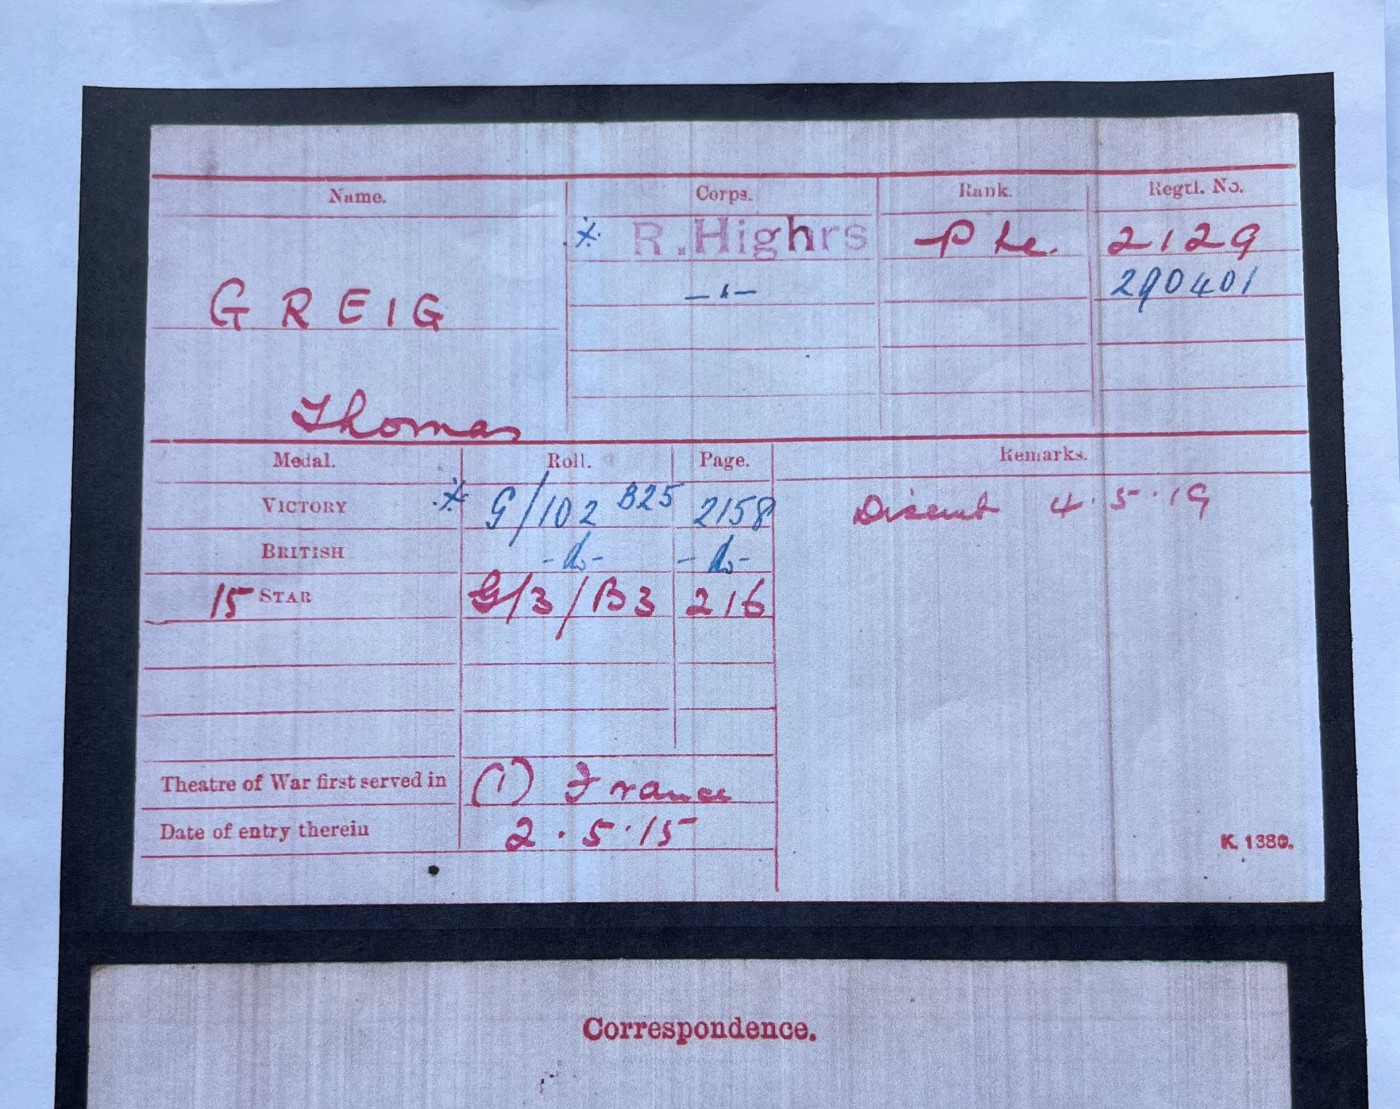 Name. Corps. Rank. Regtl. No.
* R.Highrs Pte. 2129
GREIG -"- 290401
Thomas
Medal. Roll. Page. Remarks.
VICTORY * G/102 B25 2158 Disemb 4.5.19
BRITISH -do- -do-
15 STAR G/3/B3 216
Theatre of War first served in (1) France
Date of entry therein 2.5.15
K. 1380.
Correspondence.